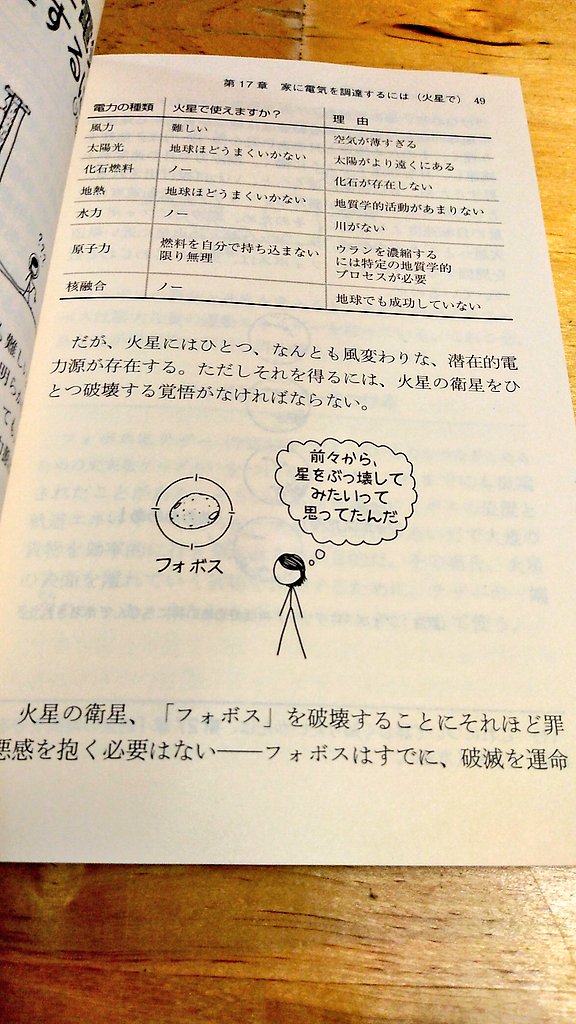 第17章 家に電気を調達するには（火星で） 49
電力の種類 火星で使えますか？ 理 由
風力 難しい 空気が薄すぎる
太陽光 地球ほどうまくいかない 太陽がより遠くにある
化石燃料 ノー 化石が存在しない
地熱 地球ほどうまくいかない 地質学的活動があまりない
水力 ノー 川がない
原子力 燃料を自分で持ち込まない ウランを濃縮する
限り無理 には特定の地質学的
プロセスが必要
核融合 ノー 地球でも成功していない
だが、火星にはひとつ、なんとも風変わりな、潜在的電
力源が存在する。ただしそれを得るには、火星の衛星をひ
とつ破壊する覚悟がなければならない。
前々から、
星をぶっ壊して
みたいって
思ってたんだ
フォボス
火星の衛星、「フォボス」を破壊することにそれほど罪
悪感を抱く必要はない――フォボスはすでに、破滅を運命